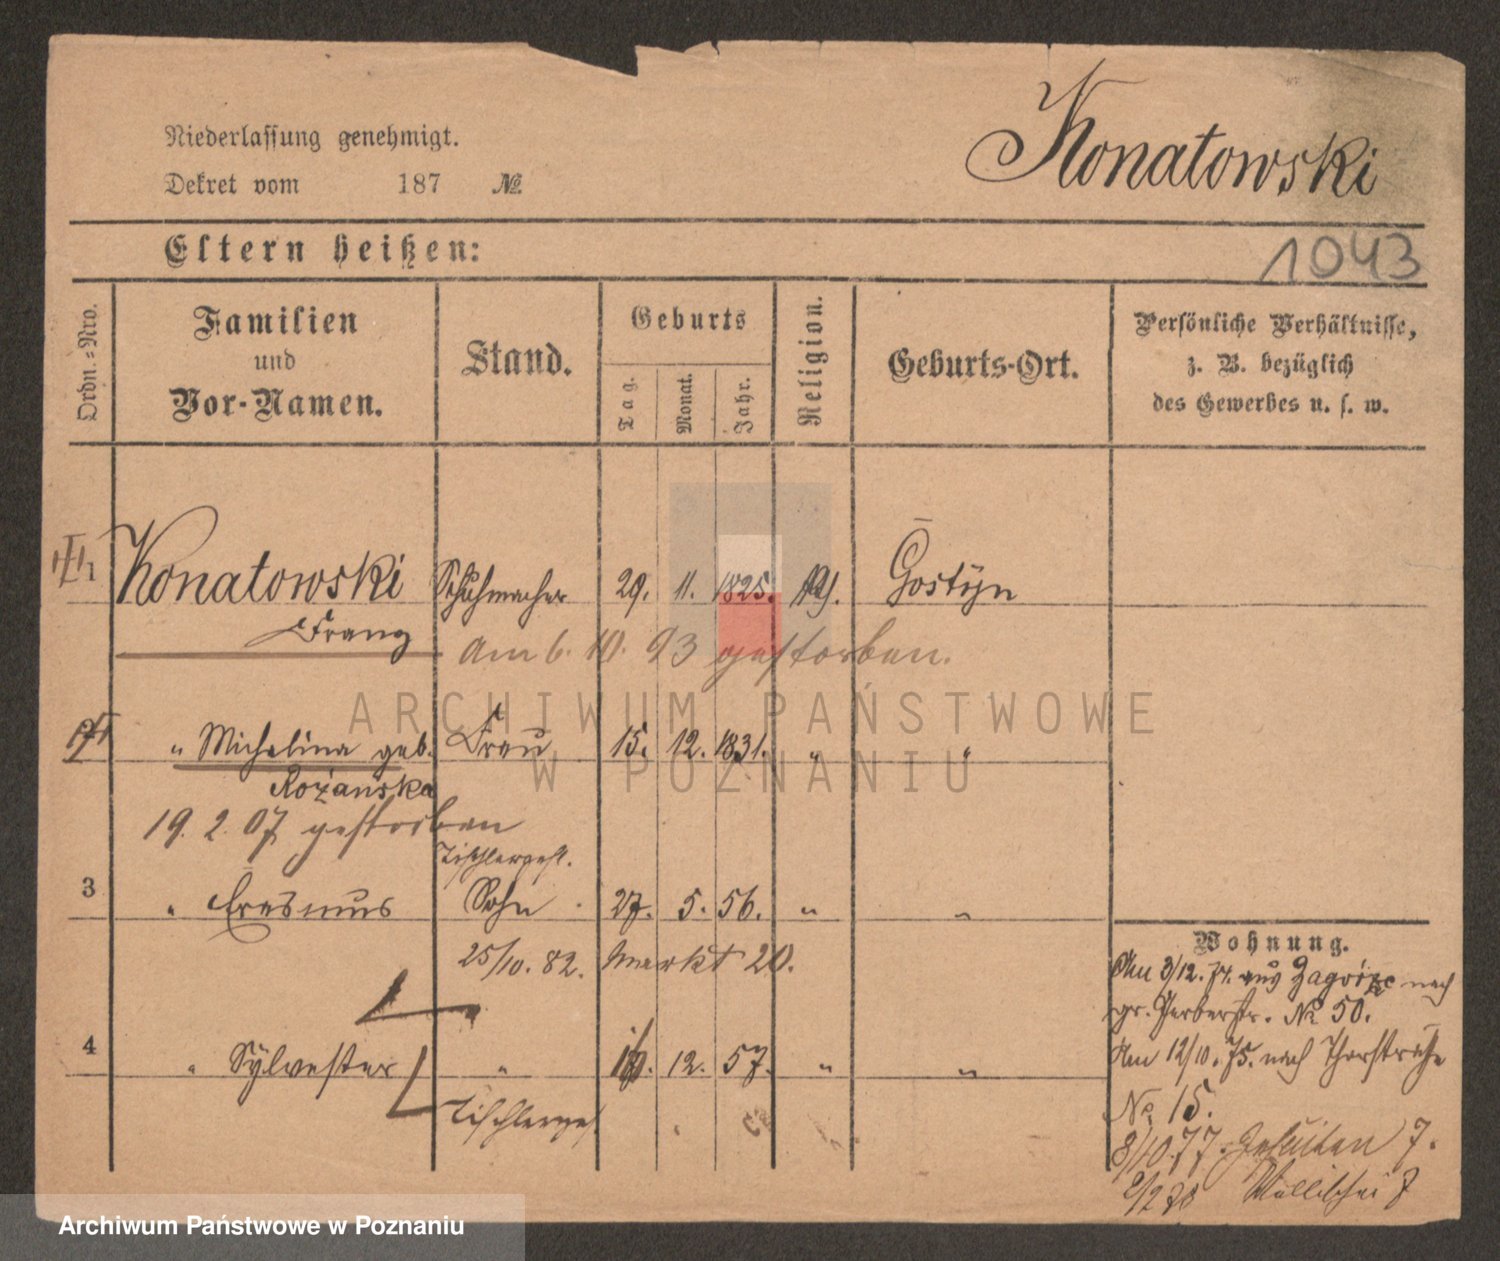 Niederlassung genehmigt.
Dekret vom 187 №
Konatowski
Eltern heißen:
1043
Ordn.-Nro.
Familien
und
Vor-Namen.
Stand.
Geburts
Tag.
Monat.
Jahr.
Religion.
Geburts-Ort.
Persönliche Verhältnisse,
z. B. bezüglich
des Gewerbes u. s. w.
1 Konatowski Schuhmacher 29. 11. 1825. Gostyn
Franz
am 6. 10. 93 gestorben.
" Michalina geb. Frau 15. 12. 1831. " "
Rożańska
19. 2. 07 gestorben
Tischlerges.
3 " Erasmus Sohn 27. 5. 56. " "
25/10. 82. Markt 20.
4 " Sylvester " 12. 57. " "
Tischlerges
Wohnung.
Am 3/12. 74. aus Zagórze nach
gr. Gerberstr. № 50.
Am 12/10. 75. nach Thorstraße
№ 15.
8/10.77. Jesuiten 7.
2/2 78 Wallischei 7
ARCHIWUM PAŃSTWOWE
W POZNANIU
Archiwum Państwowe w Poznaniu